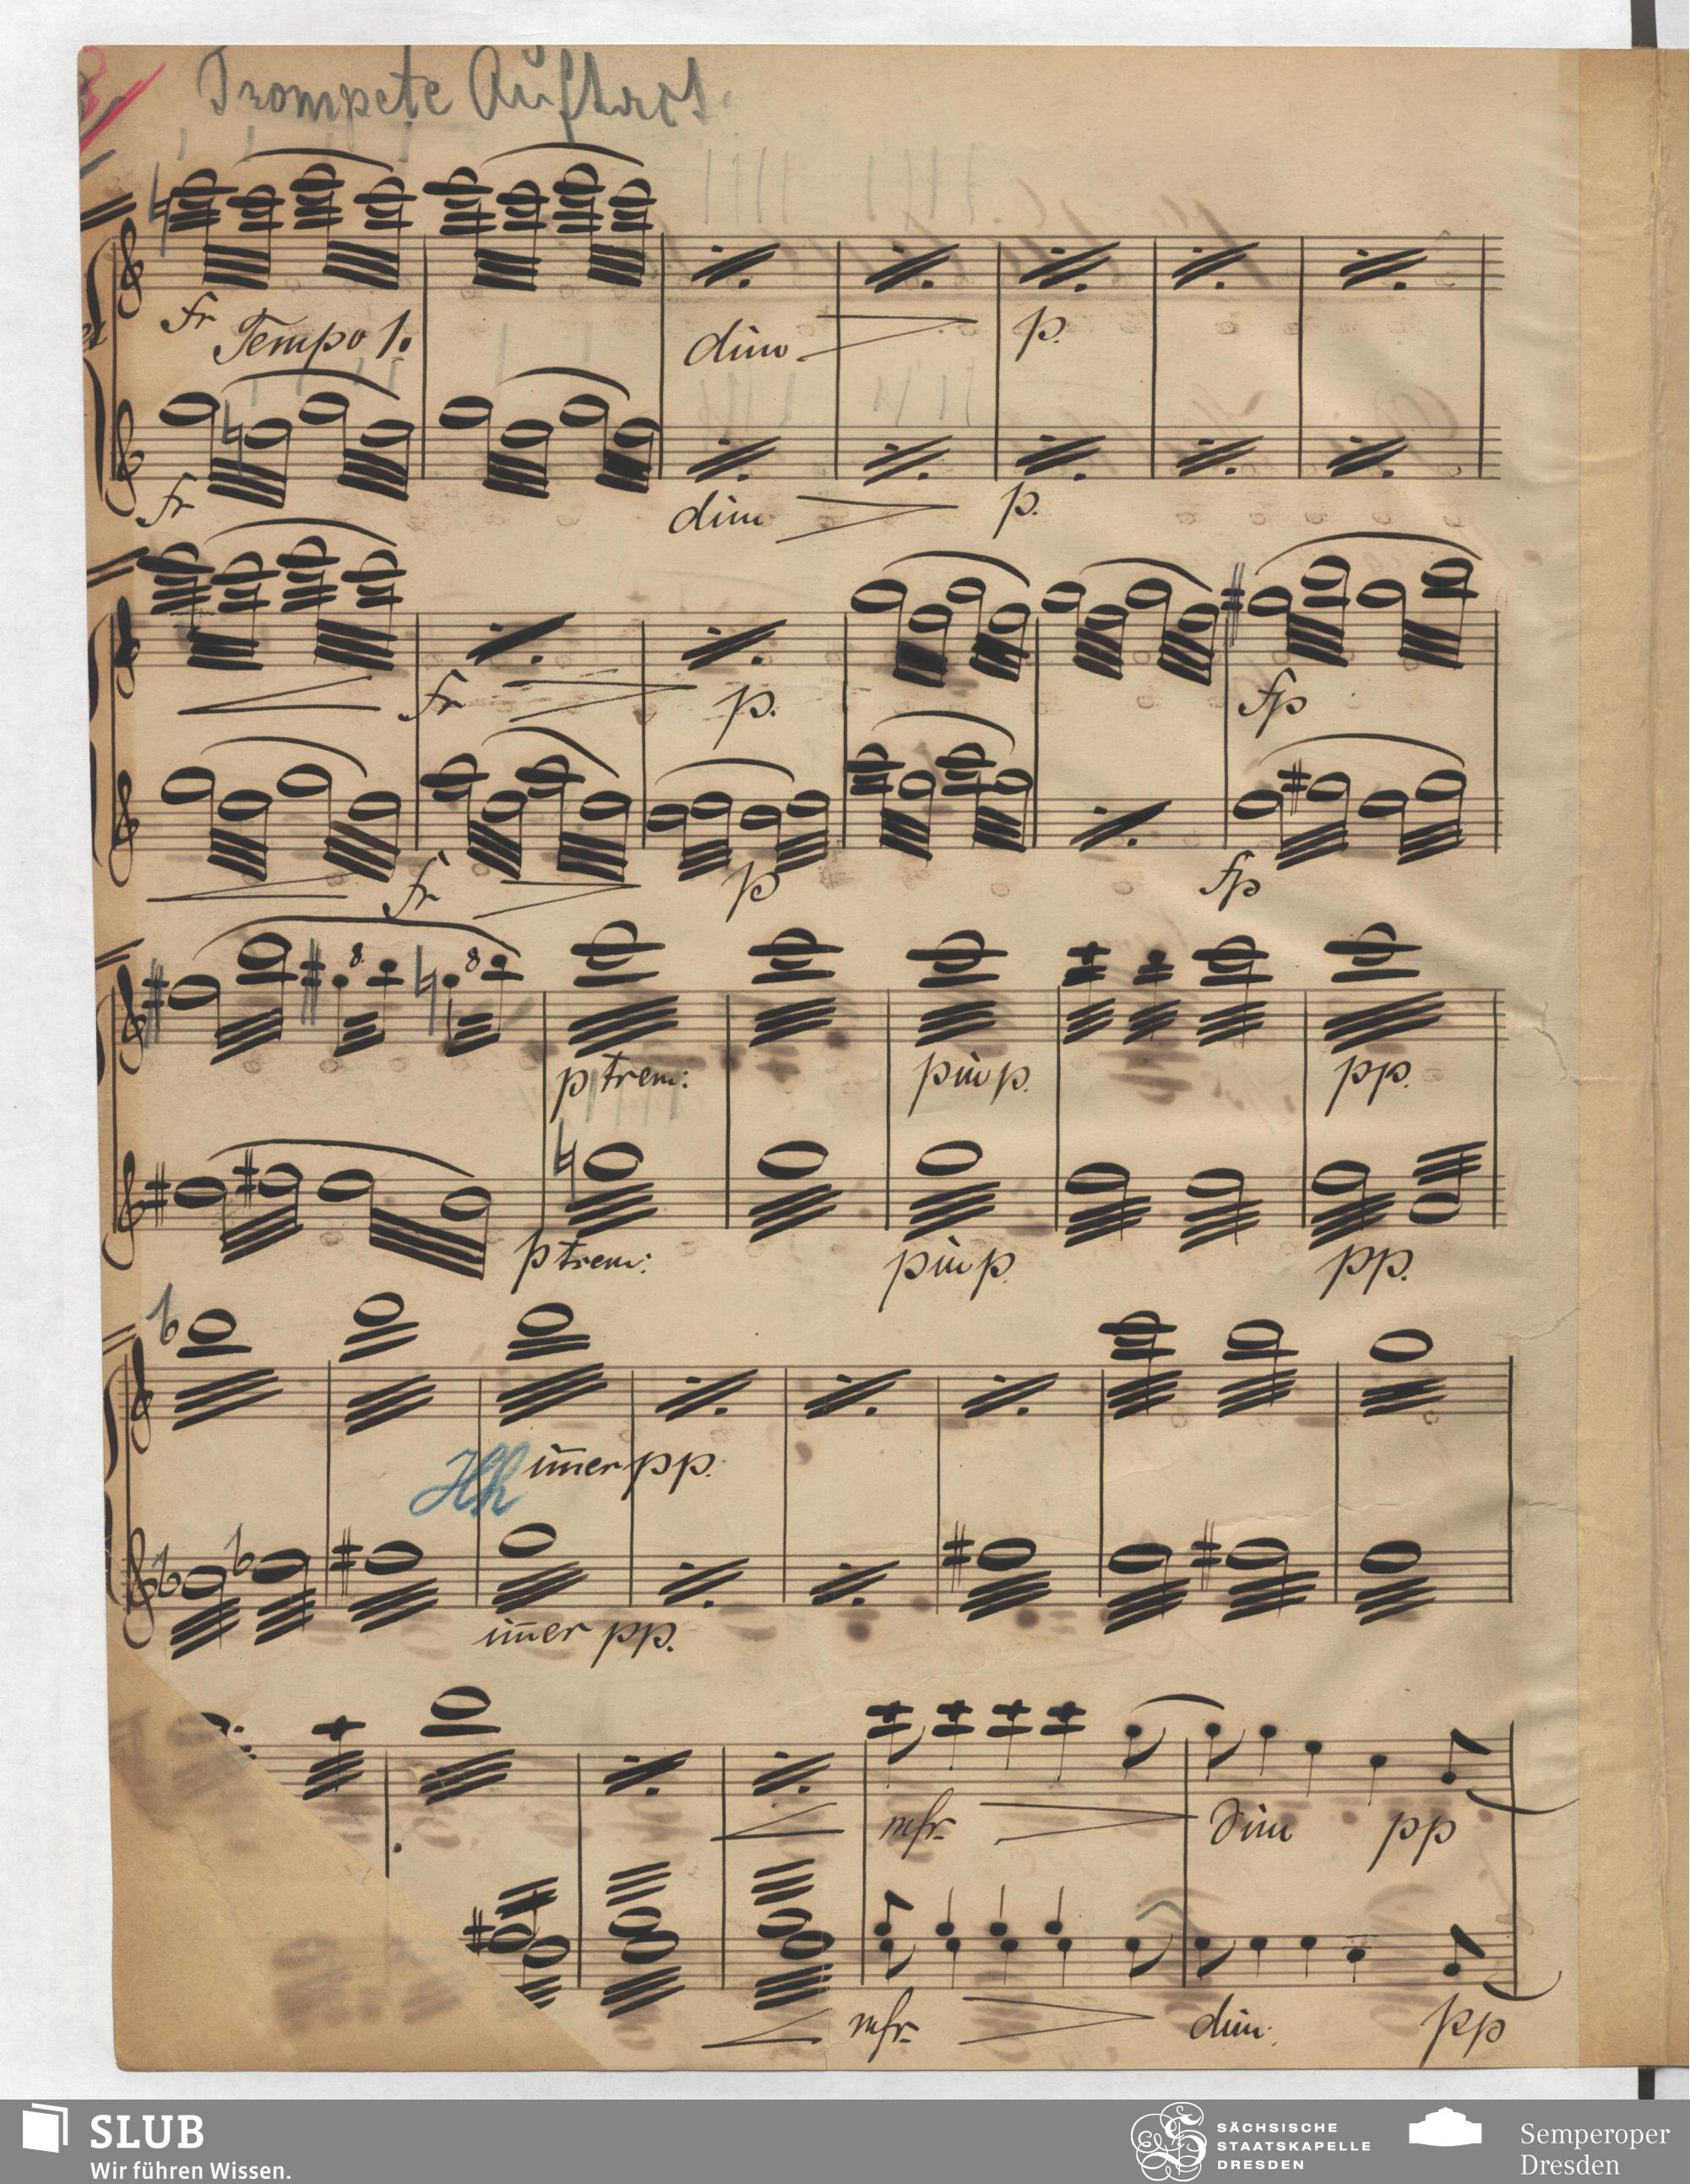 Trompete Auftact.
fr Tempo 1. dim p.
fr dim p.
fr p. fp
fr p fp
8 8
p trem: più p. pp.
p trem: più p. pp.
im̅er pp.
im̅er pp.
mfr. dim pp
mfr. dim. pp
SLUB
Wir führen Wissen.
SÄCHSISCHE
STAATSKAPELLE
DRESDEN
Semperoper
Dresden